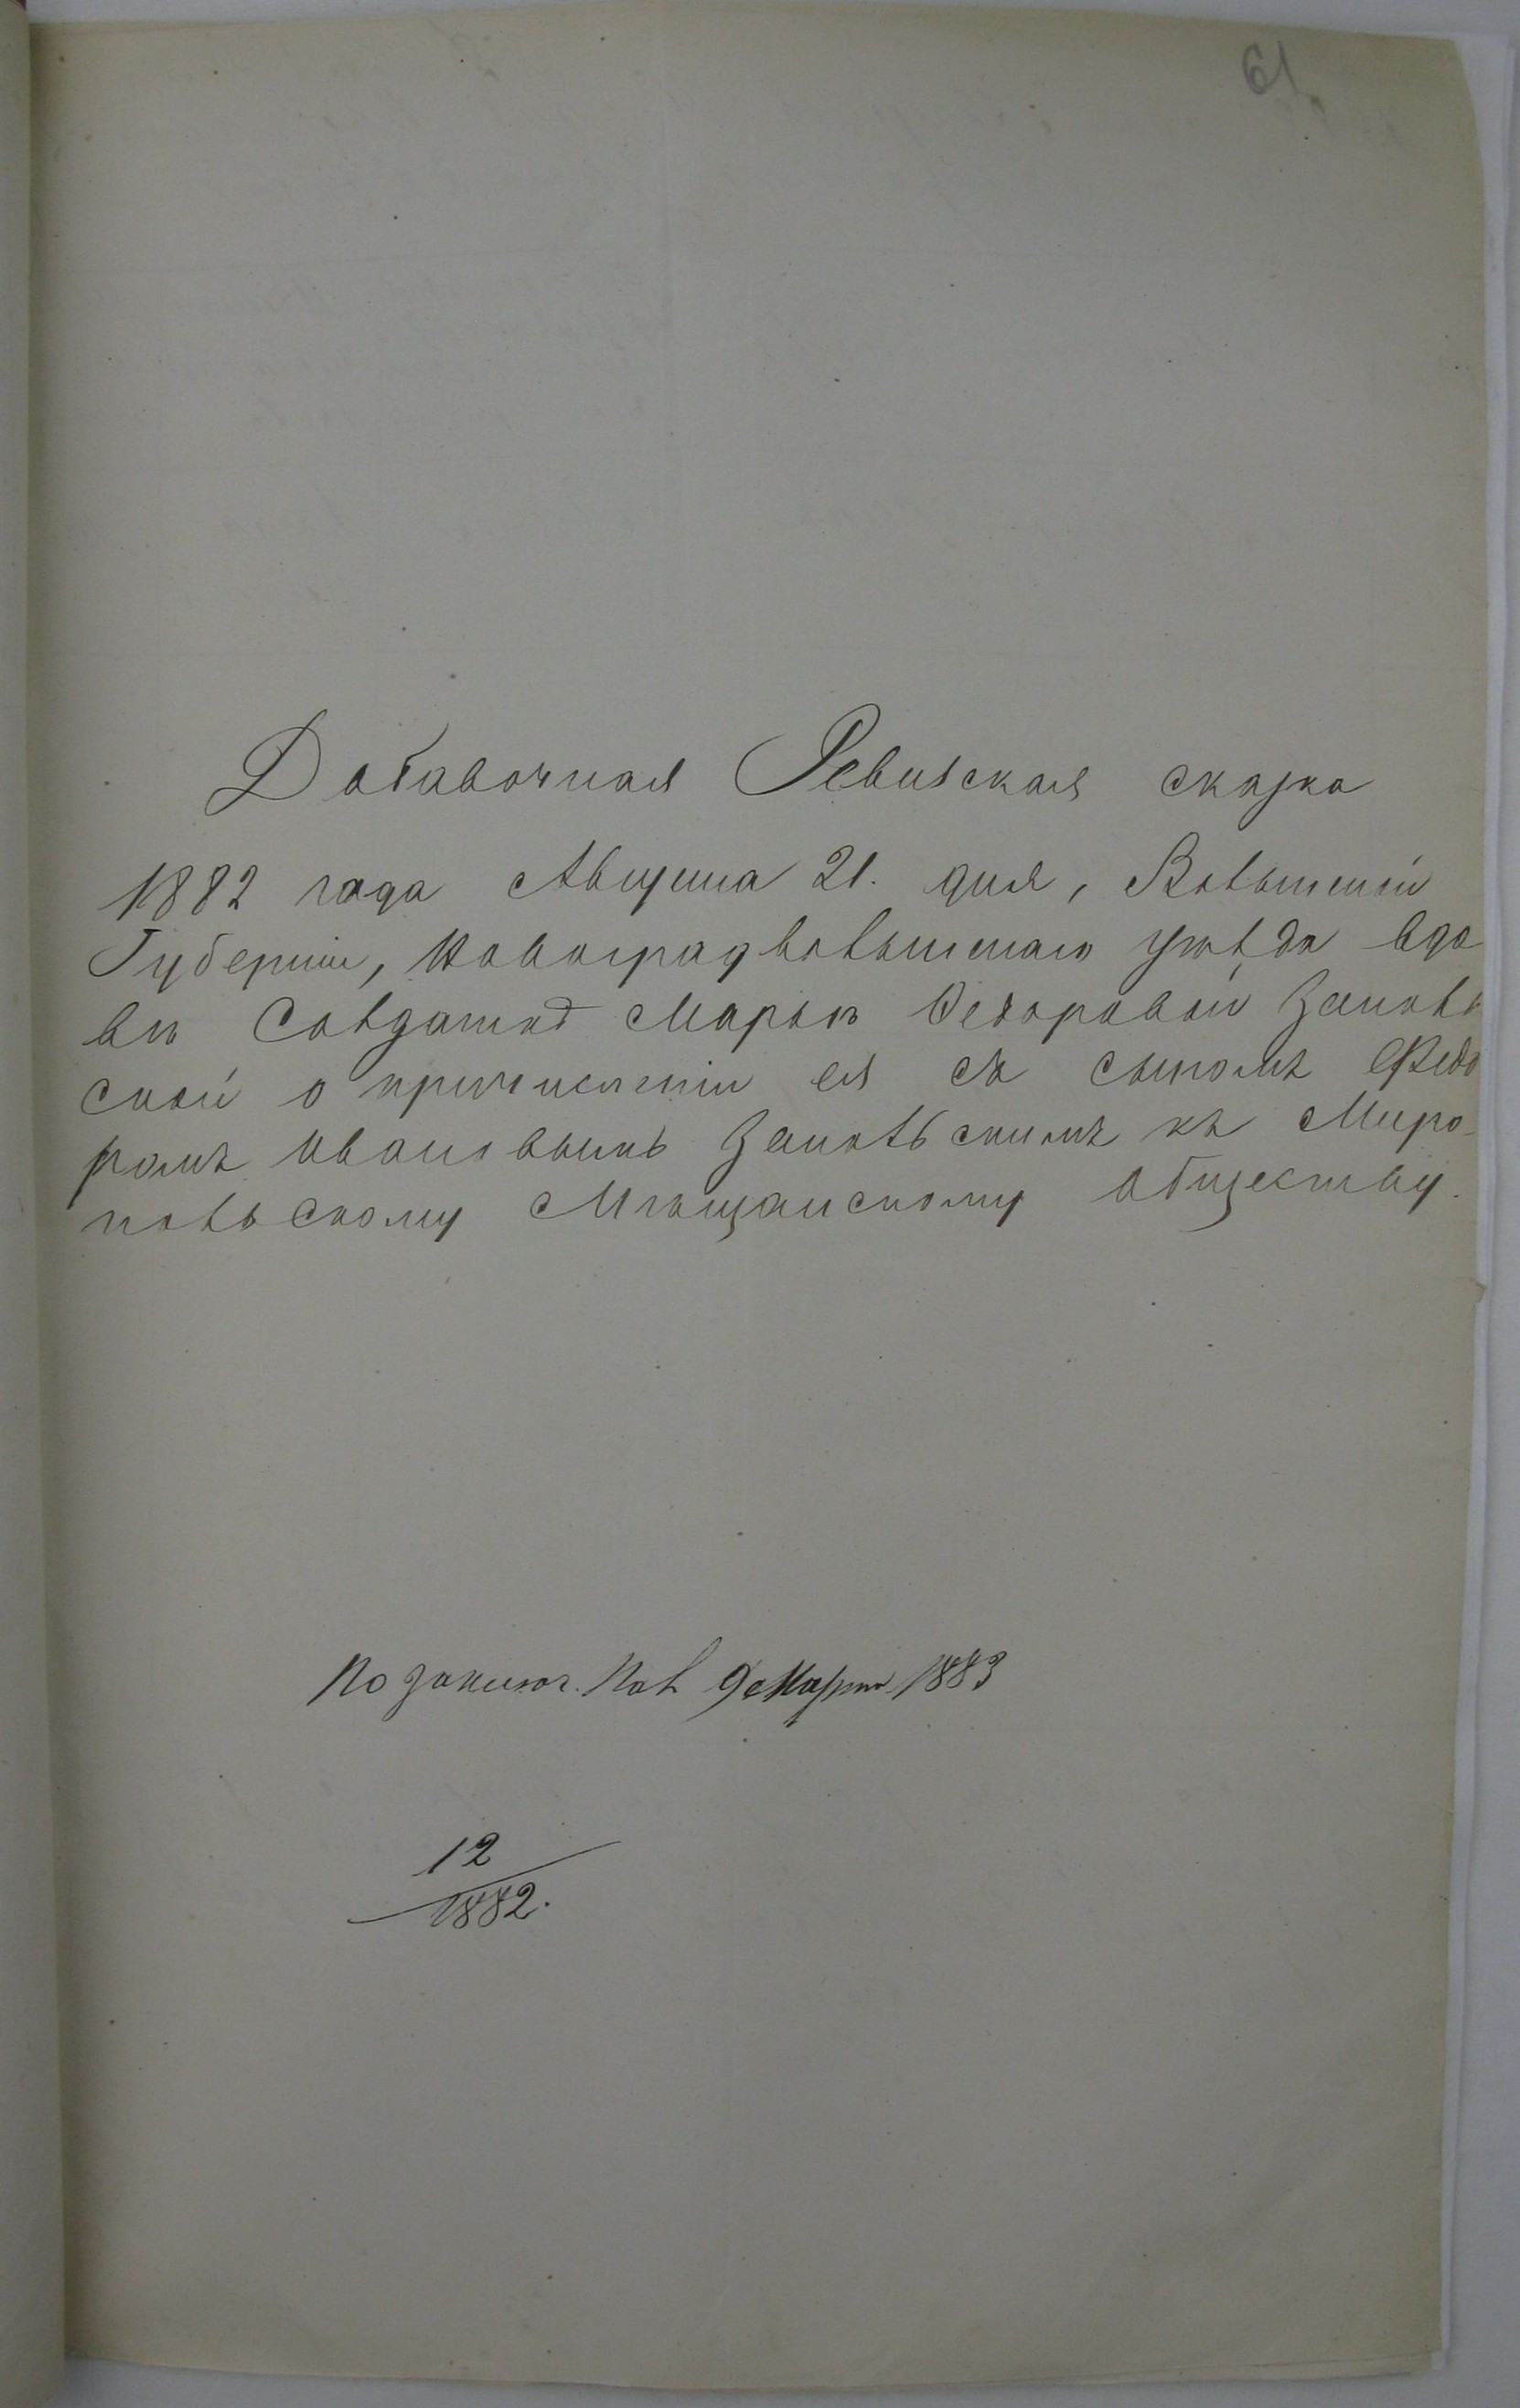 61
Добавочная Ревизская сказка
1882 года Августа 21. дня, Волынской
Губернии, Новоградволынскаго уѣзда вдо
вѣ Солдаткѣ Марьѣ Федоровой Заполь
ской о причисленіи ея съ сыномъ Ѳедо
ромъ Ивановымъ Запольскимъ къ Миро-
польскому Мѣщанскому обществу.
По заключ. Пол 9 Марта 1883
12
1882.